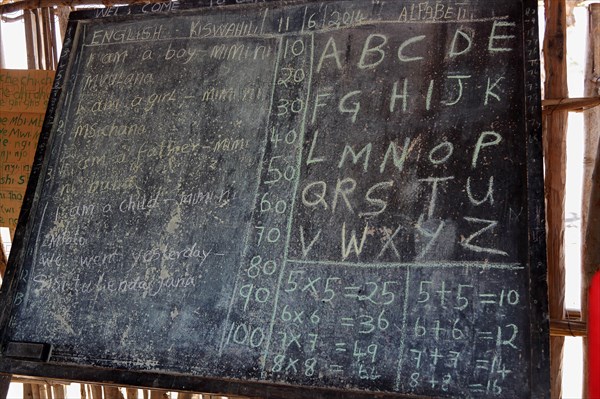 WEL COME TO
ENGLISH - KISWAHILI 11/6/2014 ALFABETI
I am a boy - mimi ni
mvulana
I am a girl - mimi ni
Msichana
I am a father - mimi
ni
I am a child - mimi ni
mtoto
We went yesterday -
Jana
10
20
30
40
50
60
70
80
90
100
A B C D E
F G H I J K
L M N O P
Q R S T U
V W X Y Z
5 x 5 = 25
6 x 6 = 36
7 x 7 = 49
8 x 8 = 64
5 + 5 = 10
6 + 6 = 12
7 + 7 = 14
8 + 8 = 16